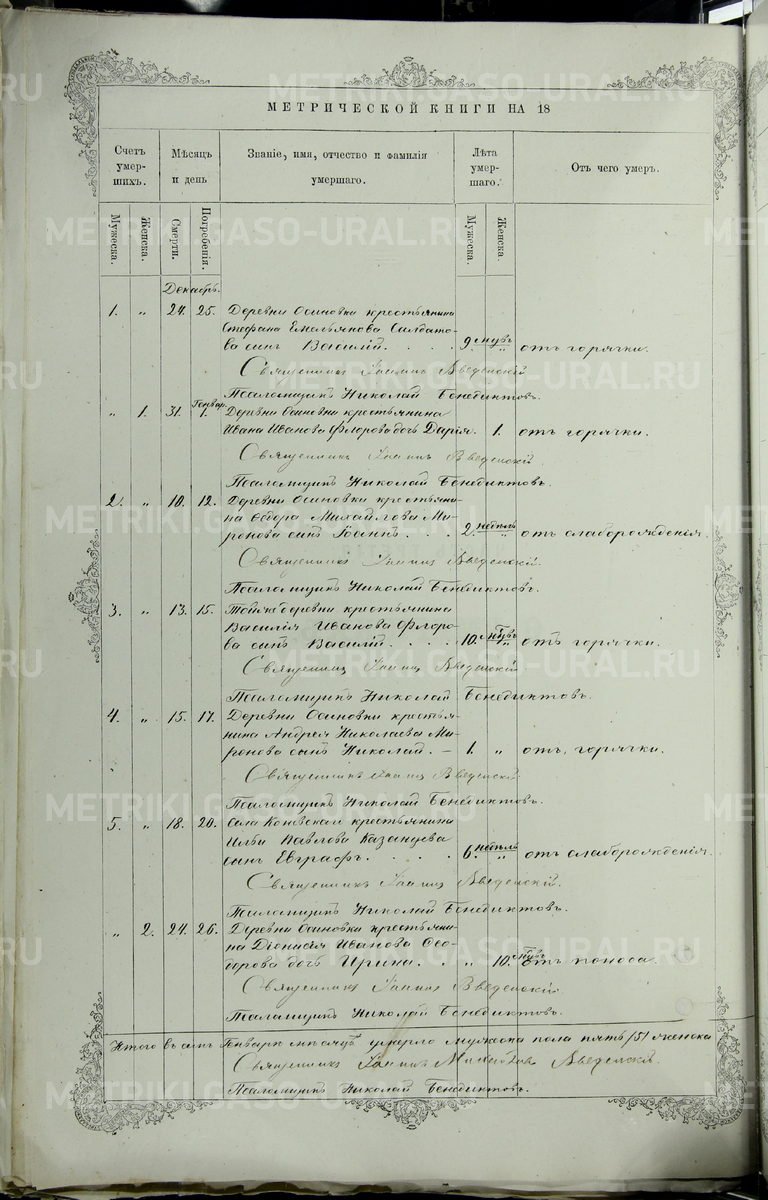 МЕТРИЧЕСКОЙ КНИГИ НА 18
Счетъ умер-шихъ.
Мѣсяцъ и день
Званіе, имя, отчество и фамилія умершаго.
Лѣта умер-шаго.
Отъ чего умеръ.
Мужеска. Женска. Смерти. Погребенія. Мужеска. Женска.
Декабрь.
1. „ 24. 25. Деревни Осиновки крестьянина
Стефана Емельянова Солдато-
ва сынъ Василій. 9. мцвъ „ отъ горячки.
Священникъ Іоаннъ Введенскій
Псаломщикъ Николай Бенедиктовъ.
Генвар.
„ 1. 31. 1. Деревни Осиновки крестьянина
Ивана Иванова Флорова дочь Дарія. 1. отъ горячки.
Священникъ Іоаннъ Введенскій.
Псаломщикъ Николай Бенедиктовъ.
2. „ 10. 12. Деревни Осиновки крестьяни-
на Ѳедора Михайлова Ми-
ронова сынъ Іоаннъ. 2. недѣль „ отъ слаборожденія.
Священникъ Іоаннъ Введенскій.
Псаломщикъ Николай Бенедиктовъ.
3. „ 13. 15. Той же деревни крестьянина
Василія Иванова Флоро-
ва сынъ Василій. 10. мцвъ „ отъ горячки.
Священникъ Іоаннъ Введенскій
Псаломщикъ Николай Бенедиктовъ.
4. „ 15. 17. Деревни Осиновки крестья-
нина Андрея Николаева Ми-
ронова сынъ Николай. 1. „ отъ горячки.
Священникъ Іоаннъ Введенскій
Псаломщикъ Николай Бенедиктовъ.
5. „ 18. 20. Села Коневскаго крестьянина
Ильи Павлова Казанцева
сынъ Евграфъ. 6. недѣль „ отъ слаборожденія.
Священникъ Іоаннъ Введенскій.
Псаломщикъ Николай Бенедиктовъ.
„ 2. 24. 26. Деревни Осиновки крестьяни-
на Діонисія Иванова Ѳео-
дорова дочь Ирина. „ 10. мцвъ отъ поноса.
Священникъ Іоаннъ Введенскій
Псаломщикъ Николай Бенедиктовъ.
Итого въ семъ Генварѣ мѣсяцѣ умерло мужеска пола пять /5/ женска
Священникъ Іоаннъ Михайловъ Введенскій.
Псаломщикъ Николай Бенедиктовъ.
METRIKI.GASO-URAL.RU